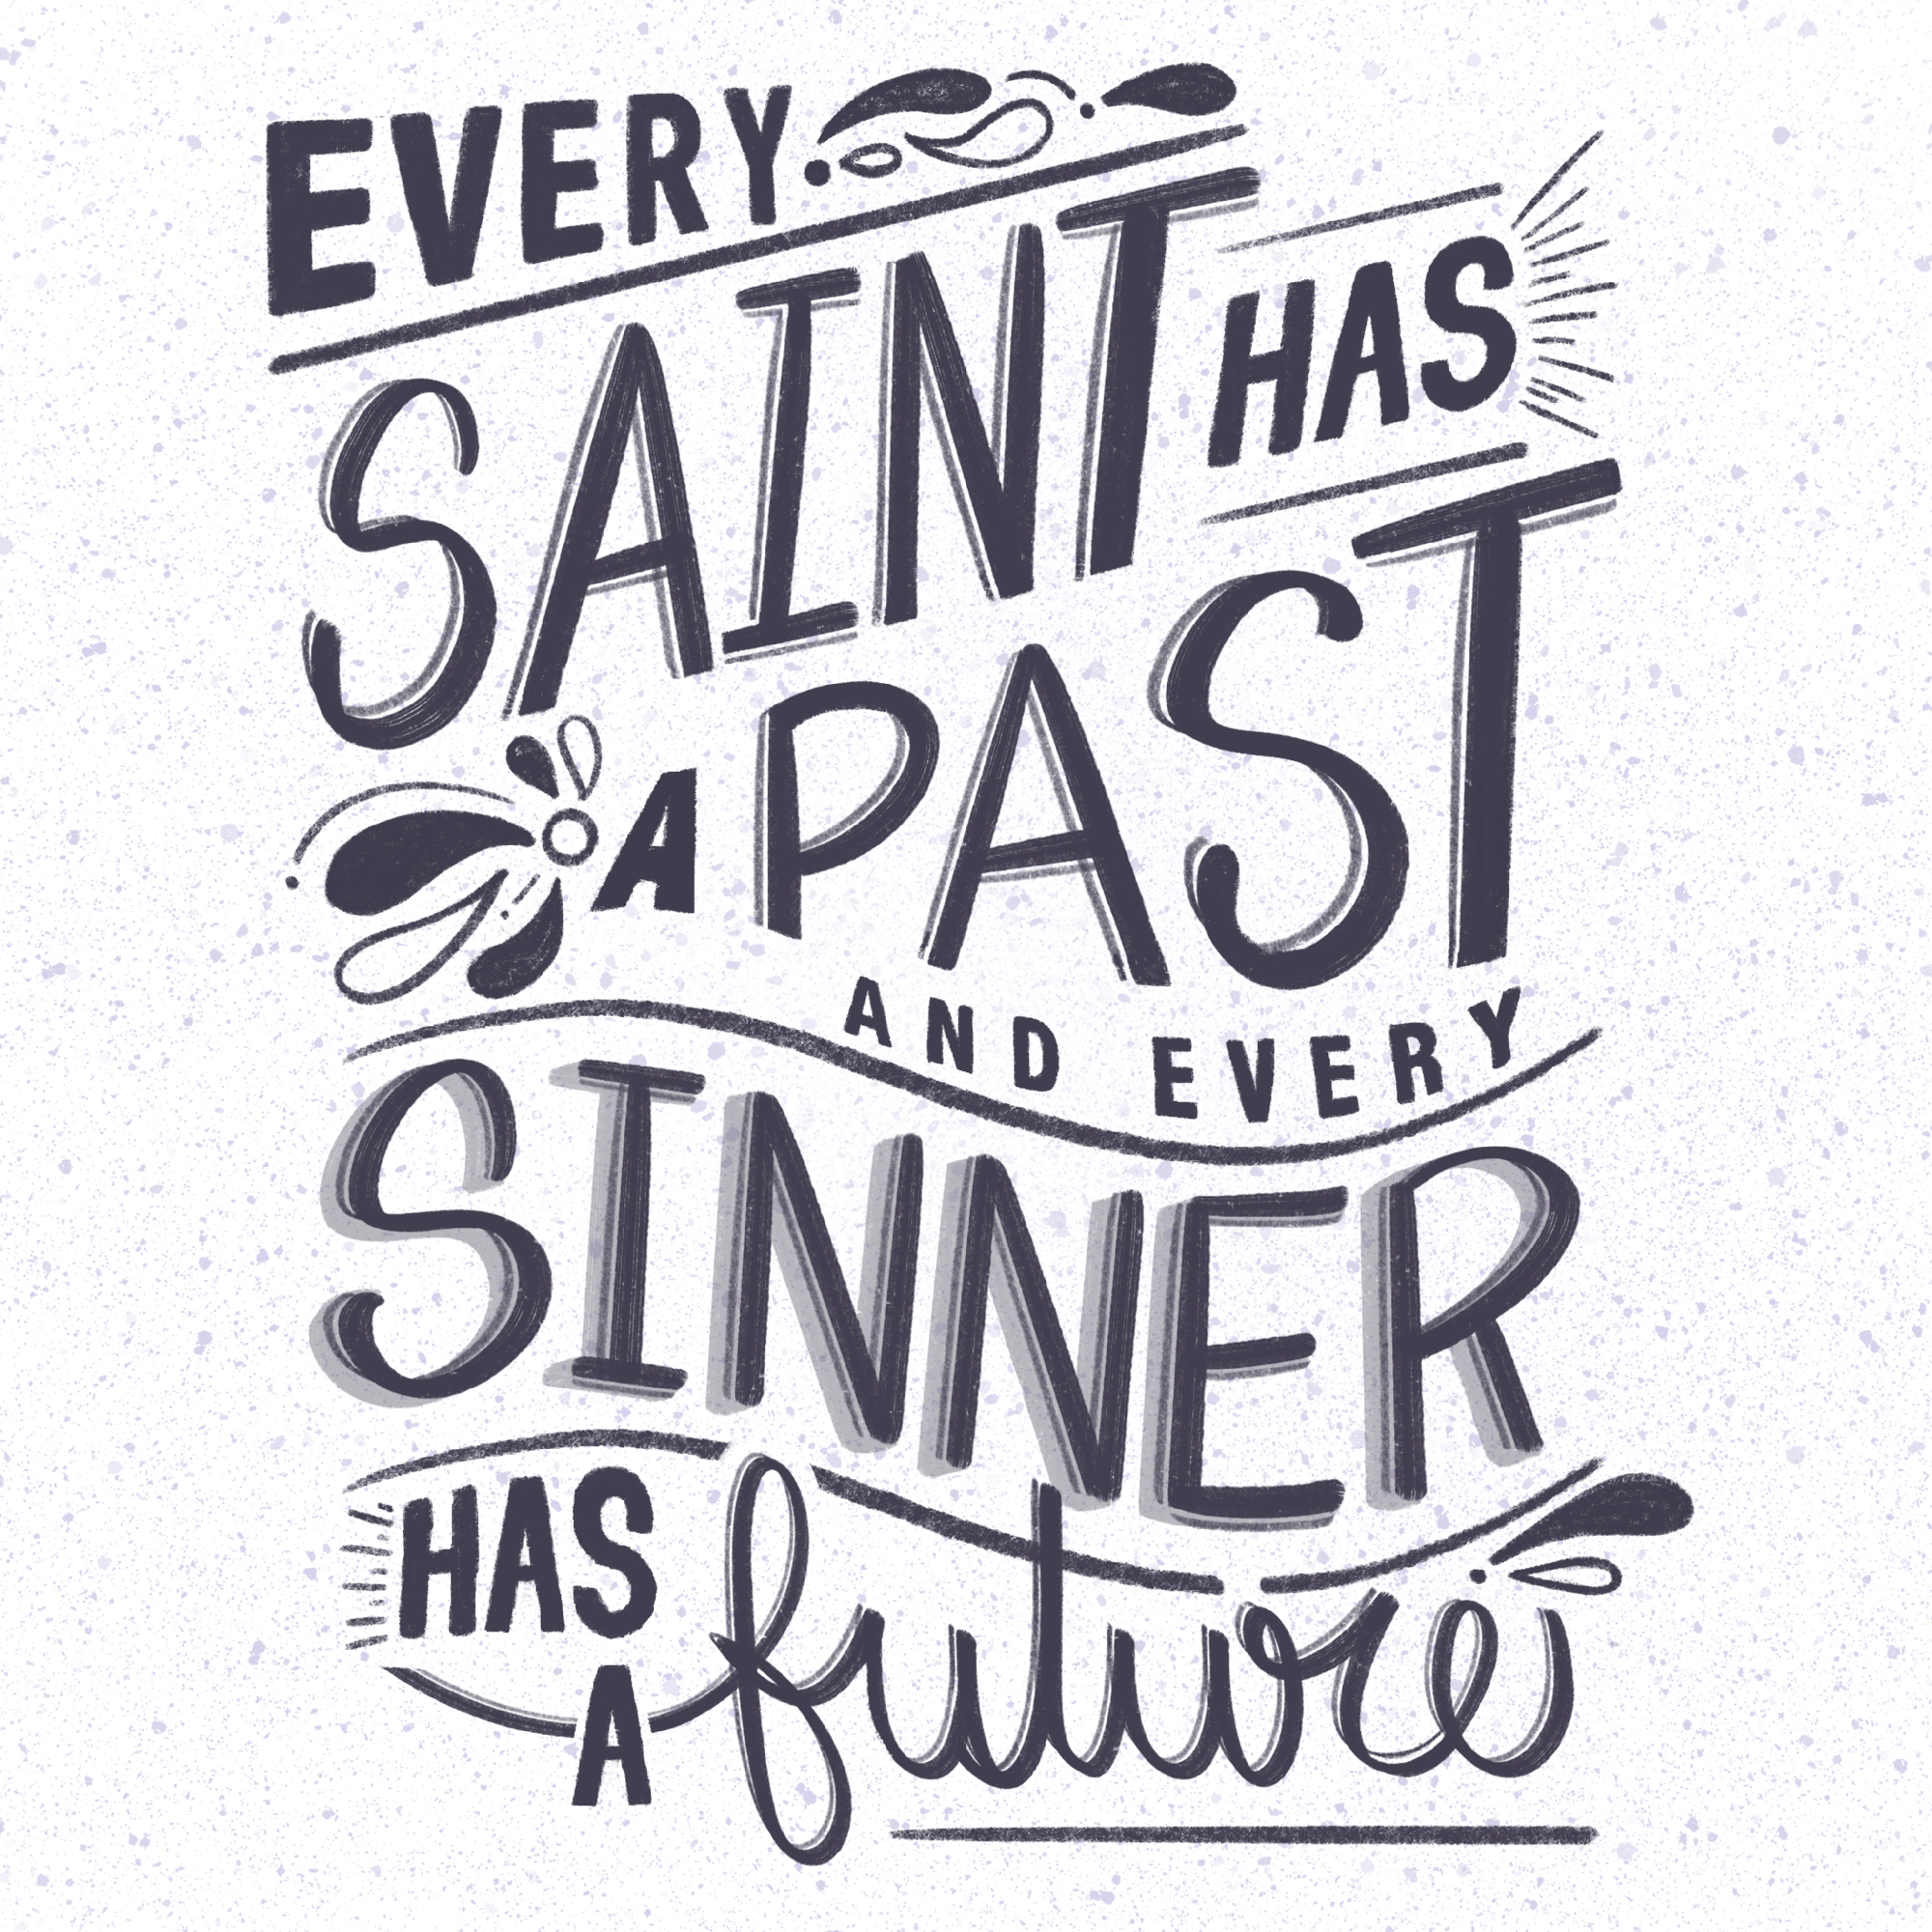 EVERY
SAINT HAS
A PAST
AND EVERY
SINNER
HAS
A future